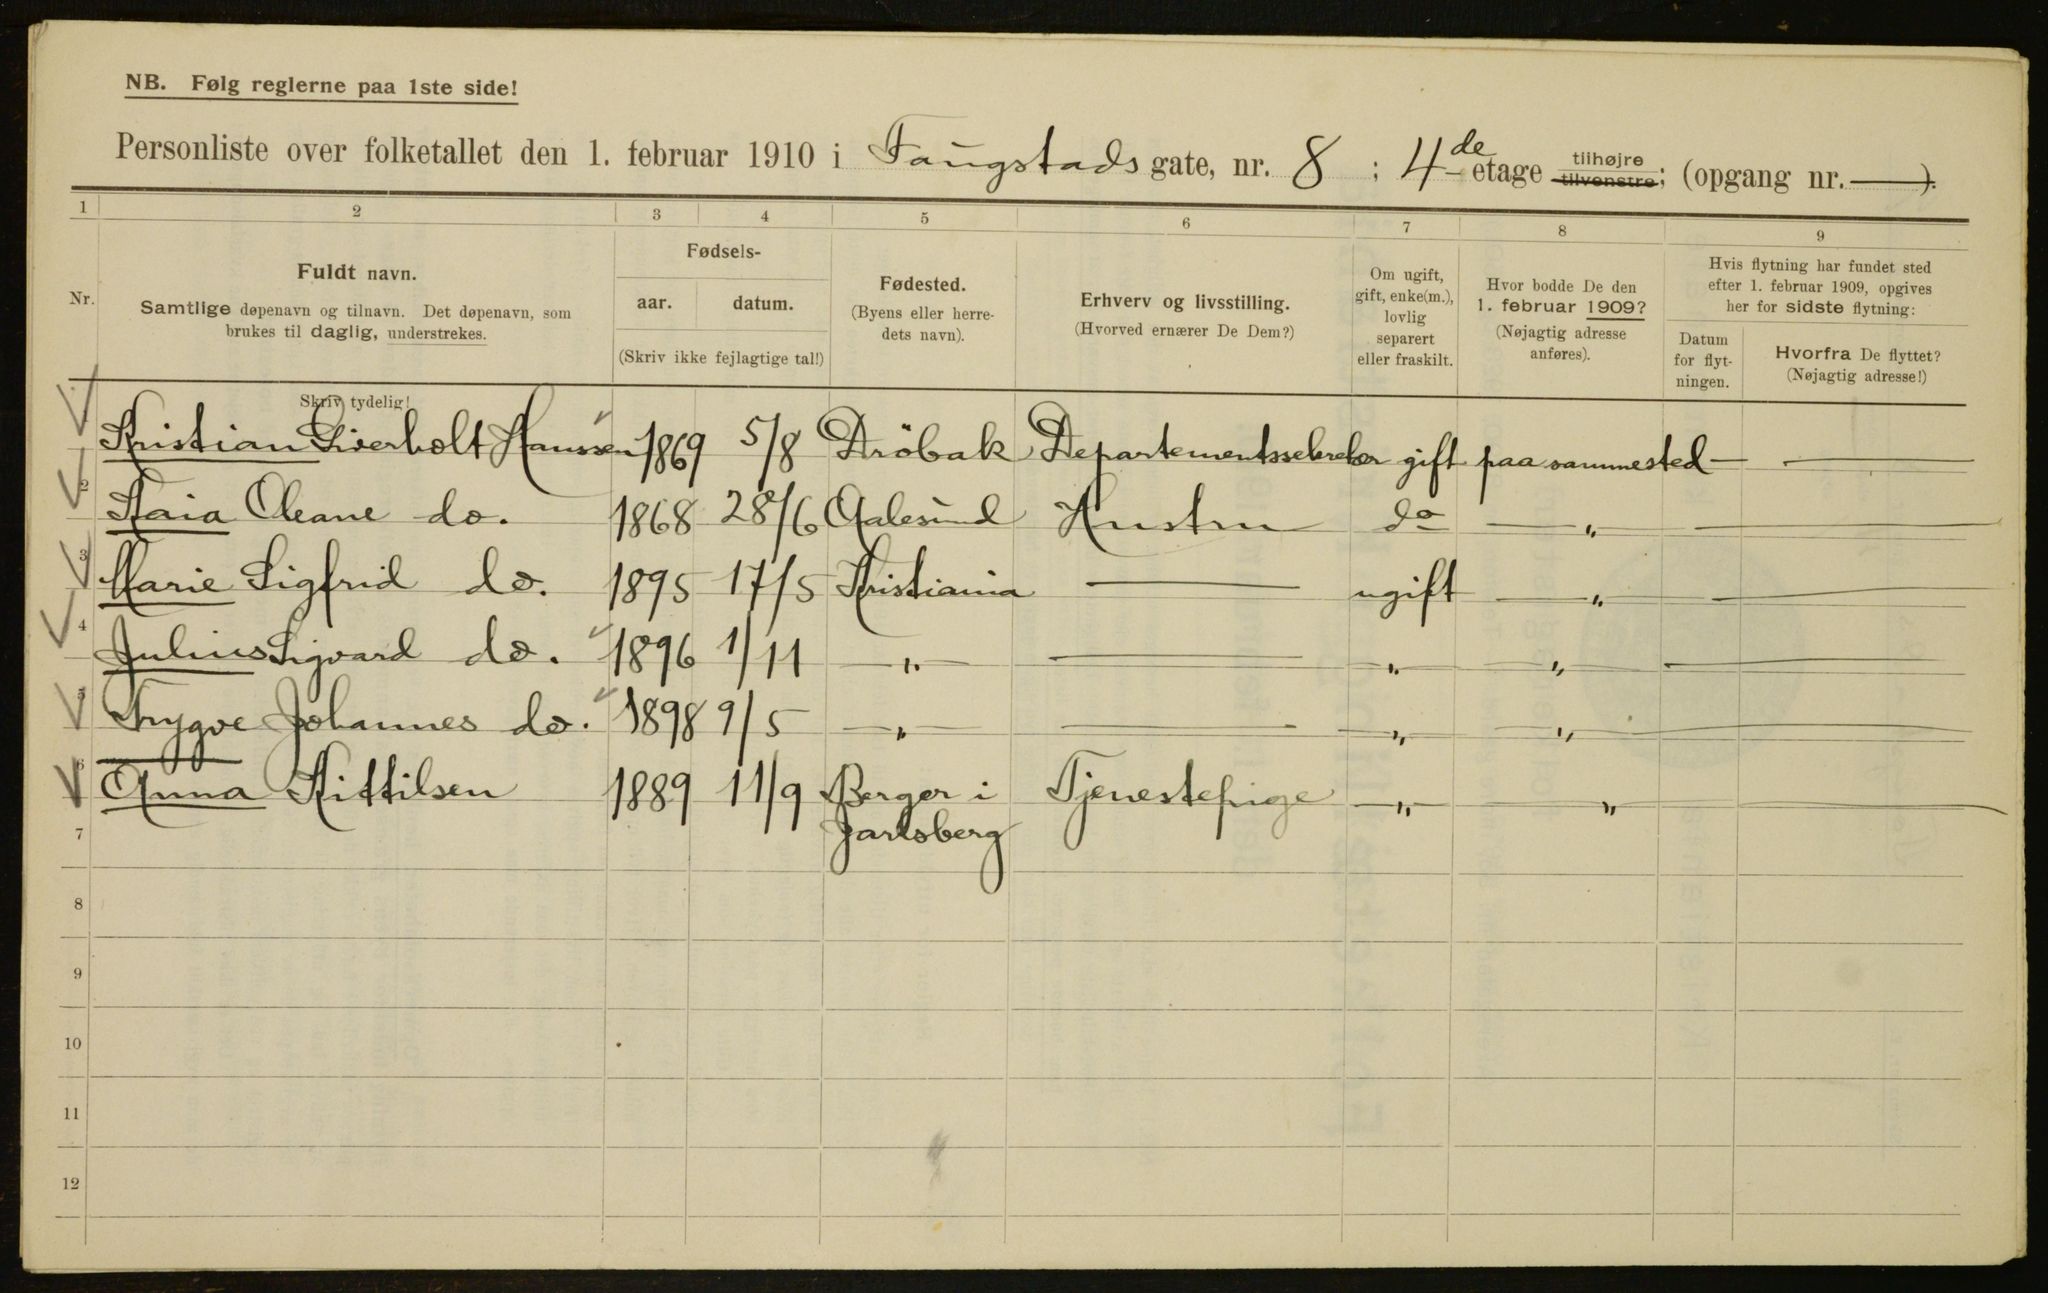 NB. Følg reglerne paa 1ste side!
Personliste over folketallet den 1. februar 1910 i Faugstads gate, nr. 8 ; 4de etage tilhøjre tilvenstre; (opgang nr. —).
1 2 3 4 5 6 7 8 9
Nr.
Fuldt navn.
Samtlige døpenavn og tilnavn. Det døpenavn, som
brukes til daglig, understrekes.
Skriv tydelig!
Fødsels-
aar. datum.
(Skriv ikke fejlagtige tal!)
Fødested.
(Byens eller herre-
dets navn).
Erhverv og livsstilling.
(Hvorved ernærer De Dem?)
Om ugift,
gift, enke(m.),
lovlig
separert
eller fraskilt.
Hvor bodde De den
1. februar 1909?
(Nøjagtig adresse
anføres).
Hvis flytning har fundet sted
efter 1. februar 1909, opgives
her for sidste flytning:
Datum
for flyt-
ningen.
Hvorfra De flyttet?
(Nøjagtig adresse!)
Kristian Siverholt Hanssen 1869 5/8 Dröbak Departementssekretær gift paa sammested — —
2 Kaia Oleane do. 1868 28/6 Aalesund Hustru do — „ — —
3 Marie Sigfrid do. 1895 17/5 Kristiania — ugift — „ — —
4 Julius Sigvard do. 1896 1/11 — „ — — — „ — — „ — —
5 Trygve Johannes do. 1898 9/5 — „ — — — „ — — „ — —
6 Anna Kittilsen 1889 11/9 Berger i Tjenestepige — „ — — „ — —
7 Jarlsberg
8
9
10
11
12